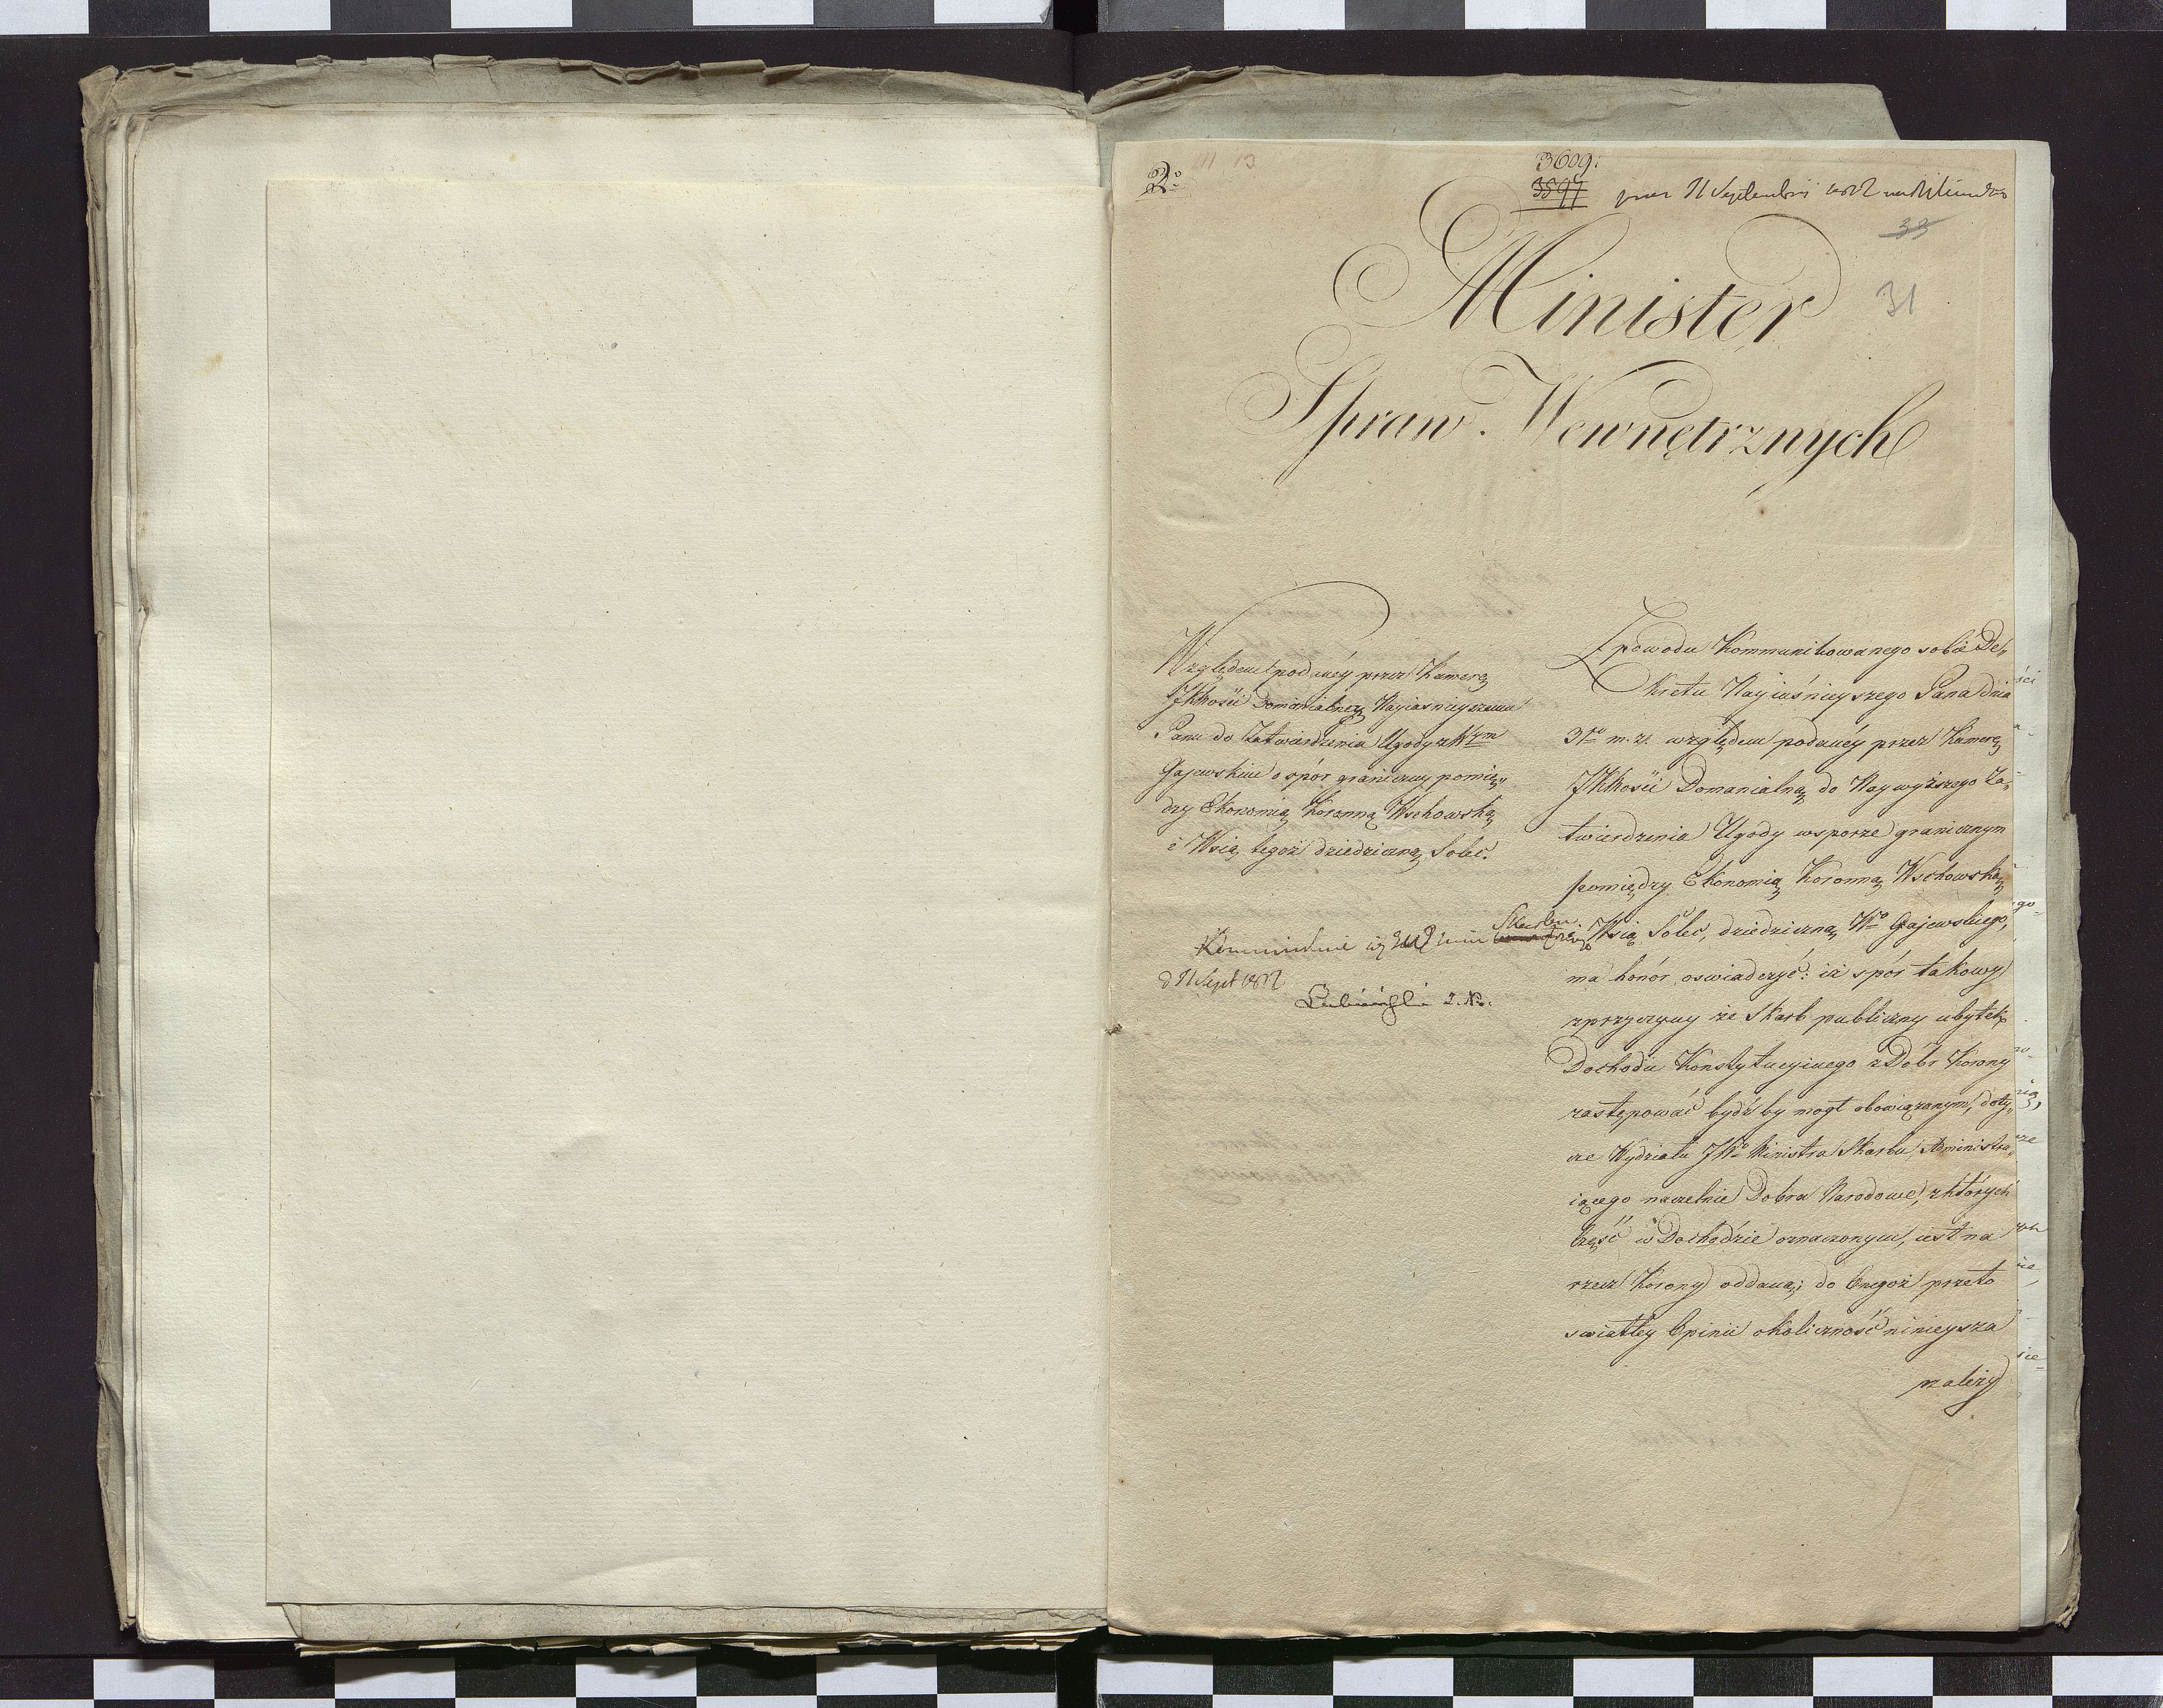 2o
3609:
3597
11 Septembris
33
31
Minister
Spraw Wewnętrznych
Względem podaney przez Kamerę
JKMości Domanialney Nayiasnieyszemu
Panu do Zatwierdzenia Ugody z Wym
Gajewskim o spór graniczny pomię„
dzy Ekonomią Koronną Wschowską
i Wsią tegoż dziedziczną Solec.
Z powodu Kommunikowanego sobie De„
kretu Nayiaśnieyszego Pana dnia
31go m. z. względem podaney przez Kamerę
JKMości Domanialną do Naywyższego Za„
twierdzenia Ugody w sporze granicznym
pomiędzy Ekonomią Koronną Wschowską
Wsią Solec, dziedziczną Wo Gajewskiego,
ma honór oswiadczyć: iż spór takowy
z przyczyny że Skarb publiczny ubytek
Dochodu Konstytucyinego z Dóbr Korony
zastępować bydź by mogł obowiązanym, doty„
cze Wydziału JWo Ministra Skarbu, Administru„
iącego naczelnie Dobra Narodowe, z których
część w Dochodzie oznaczonym, iest na
rzecz Korony oddana; do Onegoż przeto
swiatłey Opinii okoliczność ninieysza
należy
d 11 Sept 1812
Łubieński